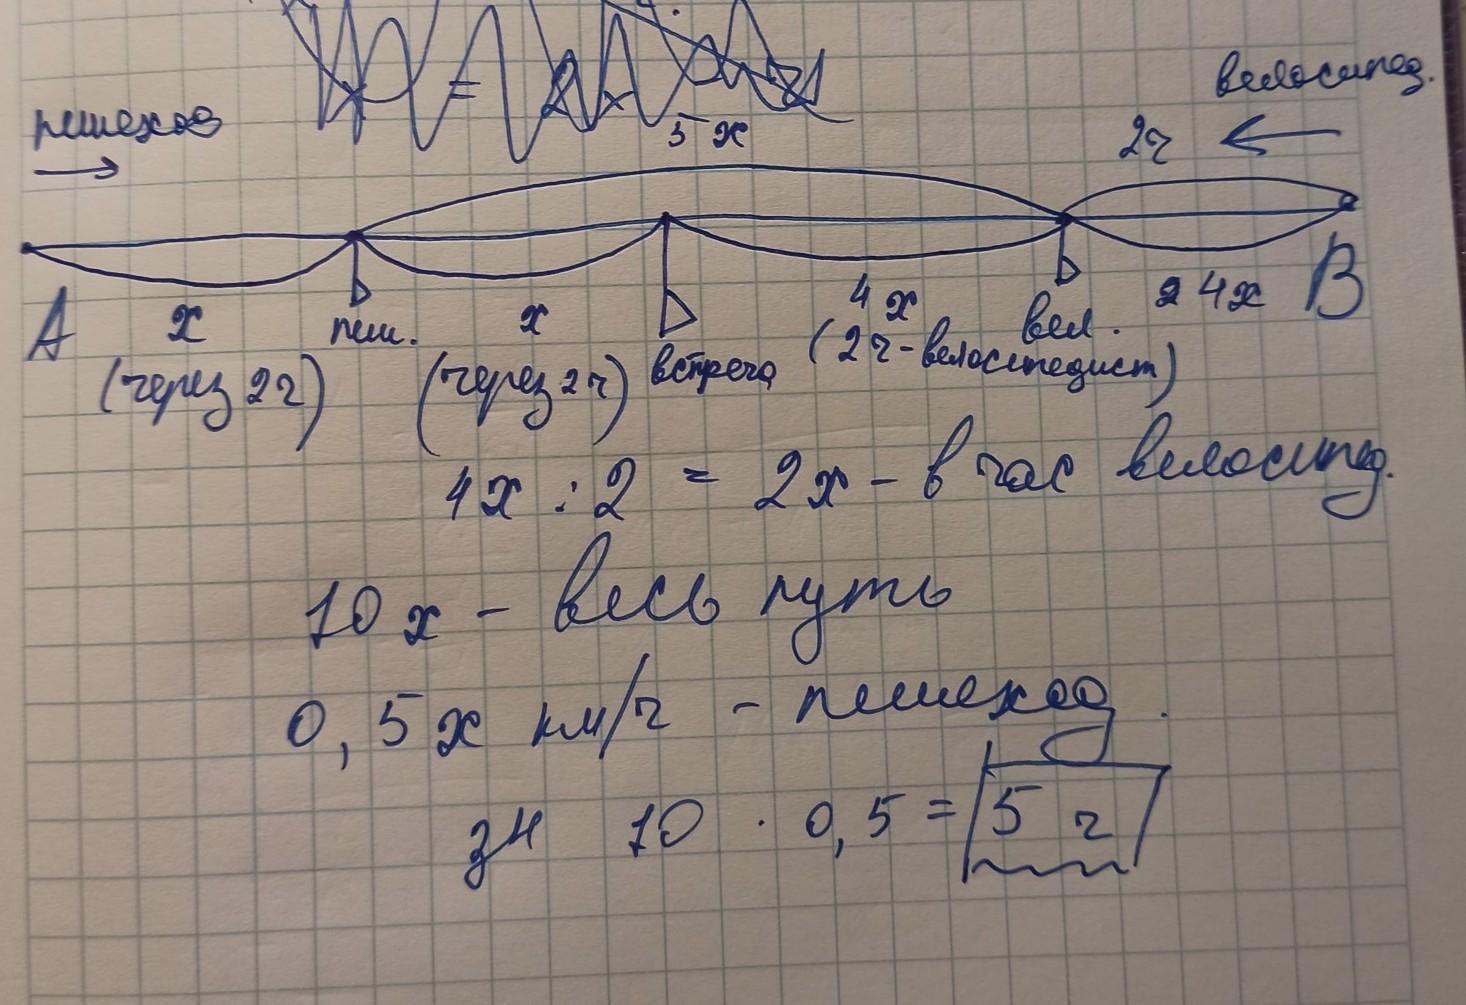 велосипед.
пешеход
5x
2ч
A
x
пеш.
x
4x
вел.
4x
B
(через 2ч)
(через 2ч)
встреча
(2ч-велосипедист)
4x : 2 = 2x - в час велосипед.
10x - весь путь
0,5x км/ч - пешеход.
10 · 0,5 = 5 ч